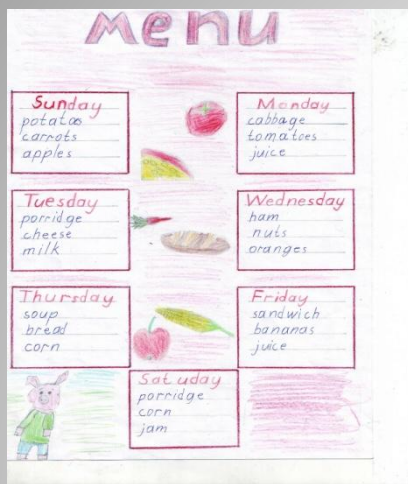 Menu
Sunday
potatoes
carrots
apples
Monday
cabbage
tomatoes
juice
Tuesday
porridge
cheese
milk
Wednesday
ham
nuts
oranges
Thursday
soup
bread
corn
Friday
sandwich
bananas
juice
Satuday
porridge
corn
jam